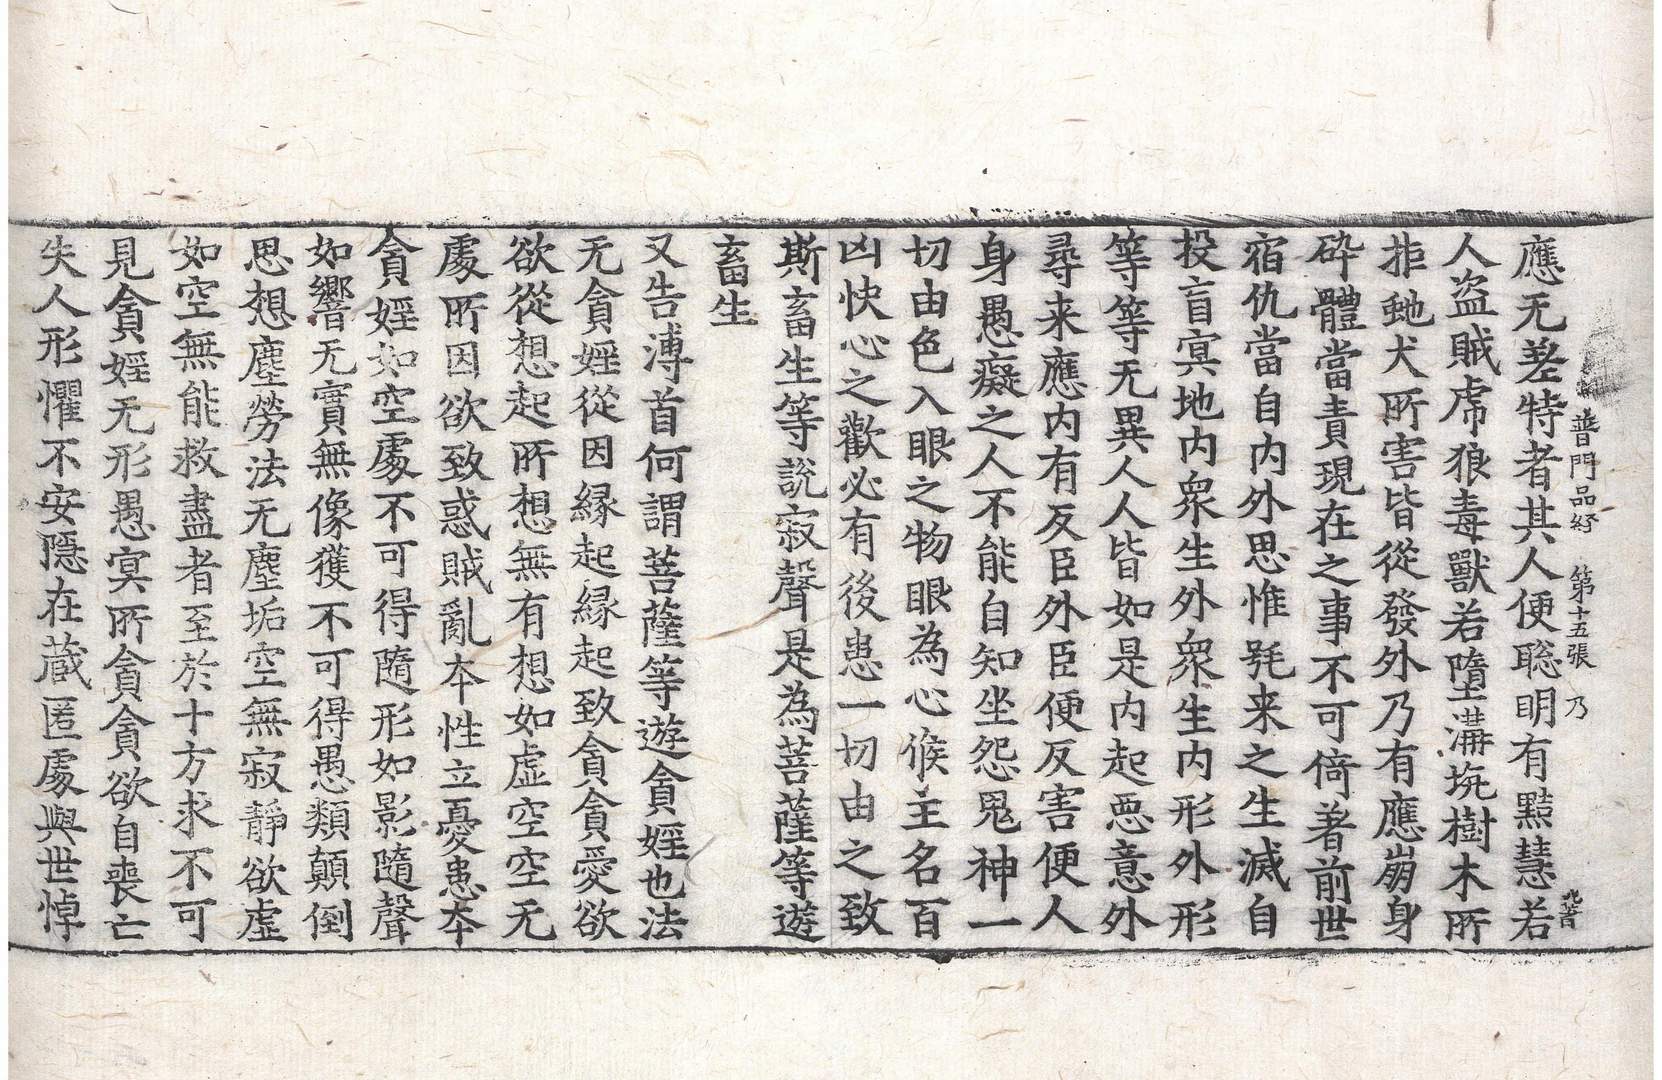 普門品経　第十五張　乃
應无差特者其人便聡明有黠慧若
人盗賊虎狼毒獸若墮溝坑樹木所
拒虵犬所害皆從發外乃有應崩身
碎體當責現在之事不可倚著前世
宿仇當自内外思惟毦来之生滅自
投盲冥地内衆生外衆生内形外形
等等无異人人皆如是内起惡意外
尋来應内有反臣外臣便反害便人
身愚癡之人不能自知坐怨鬼神一
切由色入眼之物眼為心候主名百
凶快心之歡必有後患一切由之致
斯畜生等說寂聲是為菩薩等遊
畜生
又告溥首何謂菩薩等遊貪婬也法
无貪婬從因縁起縁起致貪貪愛欲
欲從想起所想無有想如虚空空无
處所因欲致惑賊亂本性立憂患本
貪婬如空處不可得隨形如影隨聲
如響无實無像獲不可得愚類顛倒
思想塵勞法无塵垢空無寂靜欲虚
如空無能救盡者至於十方求不可
見貪婬无形愚冥所貪貪欲自喪亡
失人形懼不安隱在蔵匿處與世悼